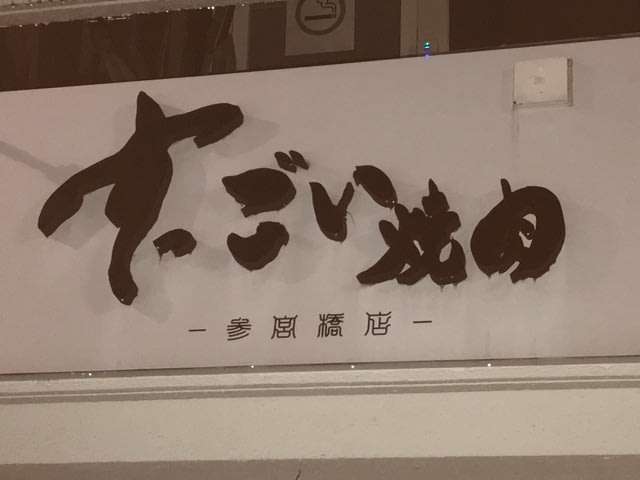 すごい焼肉
— 参宮橋店 —